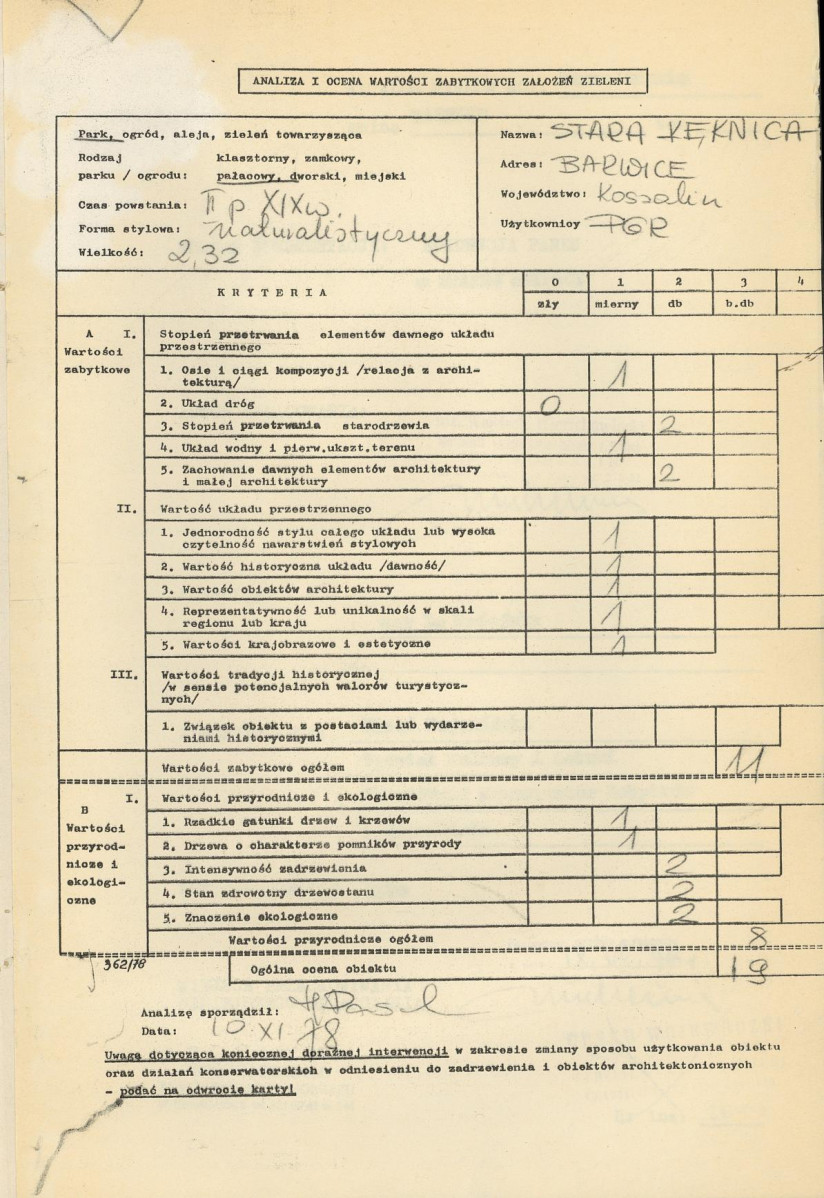 ANALIZA I OCENA WARTOŚCI ZABYTKOWYCH ZAŁOŻEŃ ZIELENI
Park, ogród, aleja, zieleń towarzysząca
Rodzaj klasztorny, zamkowy,
parku / ogrodu: pałacowy, dworski, miejski
Czas powstania: II p XIXw.
Forma stylowa: naturalistyczny
Wielkość: 2,32
Nazwa: STARA ŁĘKNICA
Adres: BARWICE
Województwo: Koszalin
Użytkownicy PGR
KRYTERIA 0 1 2 3 4
zły mierny db b.db
A I. Stopień przetrwania elementów dawnego układu
Wartości przestrzennego
zabytkowe
1. Osie i ciągi kompozycji /relacja z archi-
tekturą/ 1
2. Układ dróg 0
3. Stopień przetrwania starodrzewia 2
4. Układ wodny i pierw.ukszt.terenu 1
5. Zachowanie dawnych elementów architektury
i małej architektury 2
II. Wartość układu przestrzennego
1. Jednorodność stylu całego układu lub wysoka
czytelność nawarstwień stylowych 1
2. Wartość historyczna układu /dawność/ 1
3. Wartość obiektów architektury 1
4. Reprezentatywność lub unikalność w skali
regionu lub kraju 1
5. Wartości krajobrazowe i estetyczne 1
III. Wartości tradycji historycznej
/w sensie potencjalnych walorów turystycz-
nych/
1. Związek obiektu z postaciami lub wydarze-
niami historycznymi
Wartości zabytkowe ogółem 11
B I. Wartości przyrodnicze i ekologiczne
Wartości
przyrod-
nicze i
ekologi-
czne
1. Rzadkie gatunki drzew i krzewów 1
2. Drzewa o charakterze pomników przyrody 1
3. Intensywność zadrzewienia 2
4. Stan zdrowotny drzewostanu 2
5. Znaczenie ekologiczne 2
Wartości przyrodnicze ogółem 8
362/78
Ogólna ocena obiektu 19
Analizę sporządził:
Data: 10.XI.78
Uwagę dotyczącą koniecznej doraźnej interwencji w zakresie zmiany sposobu użytkowania obiektu
oraz działań konserwatorskich w odniesieniu do zadrzewienia i obiektów architektonicznych
- podać na odwrocie karty!